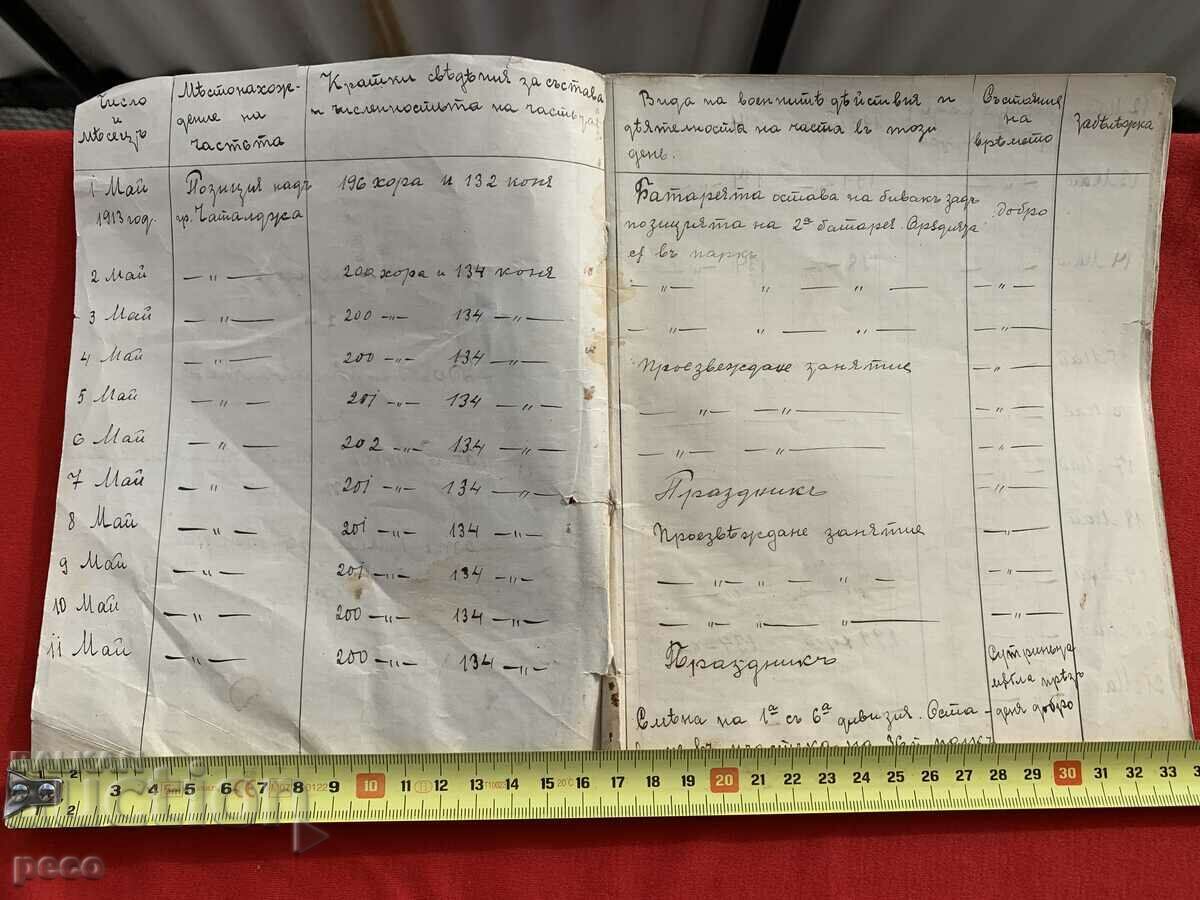 Число
и
Мѣсецъ
Мѣстонахож-
дение на
частьта
Кратки свѣдѣния за състава
и численностьта на частьта
Вида на военнитѣ дѣйствия и
дѣятелностьта на частта въ този
день.
Състояние
на
врѣмето
забѣлѣжка
1 Май
1913 год.
Позиция надъ
гр. Чаталджа
196 хора и 132 коня
Батареята остава на бивакъ задъ
позицията на 2а батарея.
се въ паркъ
добро
2 Май — „ — 200 хора и 134 коня — „ — „ — — „ —
3 Май — „ — 200 —„— 134 —„— — „ — „ — — „ —
4 Май — „ — 200 —„— 134 —„— Проезвеждане занятие — „ —
5 Май — „ — 201 —„— 134 —„— — „ — — „ — — „ —
6 Май — „ — 202 —„— 134 —„— — „ — — „ — — „ —
7 Май — „ — 201 —„— 134 —„— Праздникъ — „ —
8 Май — „ — 201 —„— 134 —„— Проезвѣждане занятие — „ —
9 Май — „ — 201 —„— 134 —„— — „ — „ — „ — — „ —
10 Май — „ — 200 —„— 134 —„— — „ — „ — — „ —
11 Май — „ — 200 —„— 134 —„— Праздникъ
Сутриньта
мъгла прѣзъ
деня добро
Смѣна на 1а съ 6а дивизия. Оста-
1 2 3 4 5 6 7 8 9 10 11 12 13 14 15 16 17 18 19 20 21 22 23 24 25 26 27 28 29 30 31 32 33
20°C
auction
peco